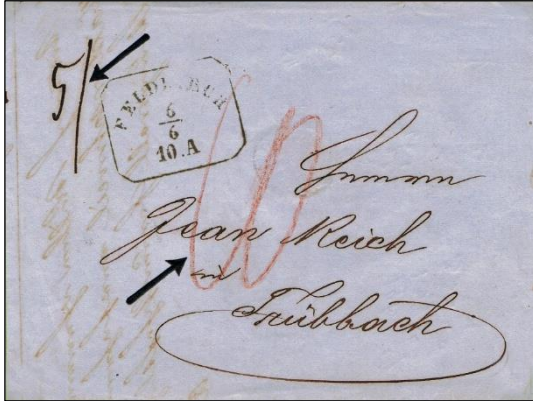 5/
FELDKIRCH
6
6
10.A
10
Jean Reich
in
Trübbach